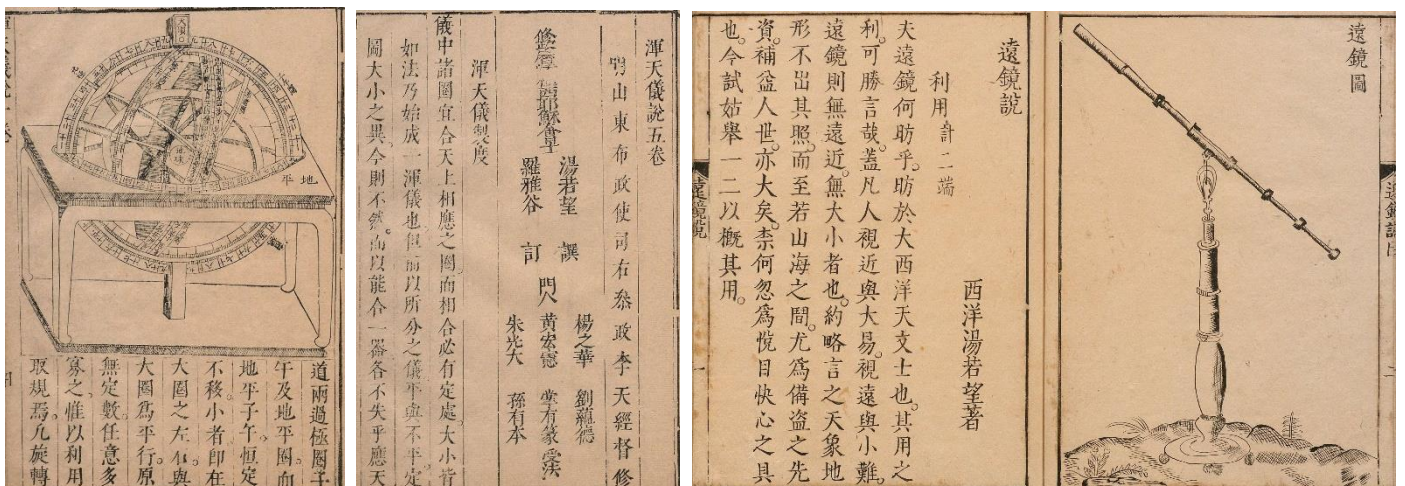 地平
道兩過極圈子
午及地平圈而
地平子午。恒定
不移。小者卽在
大圈之左右。與
大圈爲平行。原
無定數。任意多
寡之。惟以利用
取規焉。凡旋轉
渾天儀說五卷
明山東布政使司右叅政李天經督修
耶穌會士
湯若望 譔
羅雅谷 訂
門人
楊之華 劉蘊德
黃宏憲 掌有篆 受法
朱光大 孫有本
渾天儀製度
儀中諸圈宜合天上相應之圈。而相合必有定處。大小皆
如法。乃始成一渾儀也。但前以所分之儀平與不平定
圖大小之異。今則不然。而以能合一器各不失乎應天
遠鏡圖
遠鏡說
西洋湯若望著
利用計二端
夫遠鏡何昉乎。昉於大西洋天文士也。其用之
利。可勝言哉。蓋凡人視近與大易。視遠與小難。
遠鏡則無遠近。無大小者也。約略言之。天象地
形不出其照。而至若山海之間。尤爲備盜之先
資。補益人世。亦大矣。柰何忽爲悅目快心之具
也。今試姑舉一二。以槪其用。
遠鏡說
一